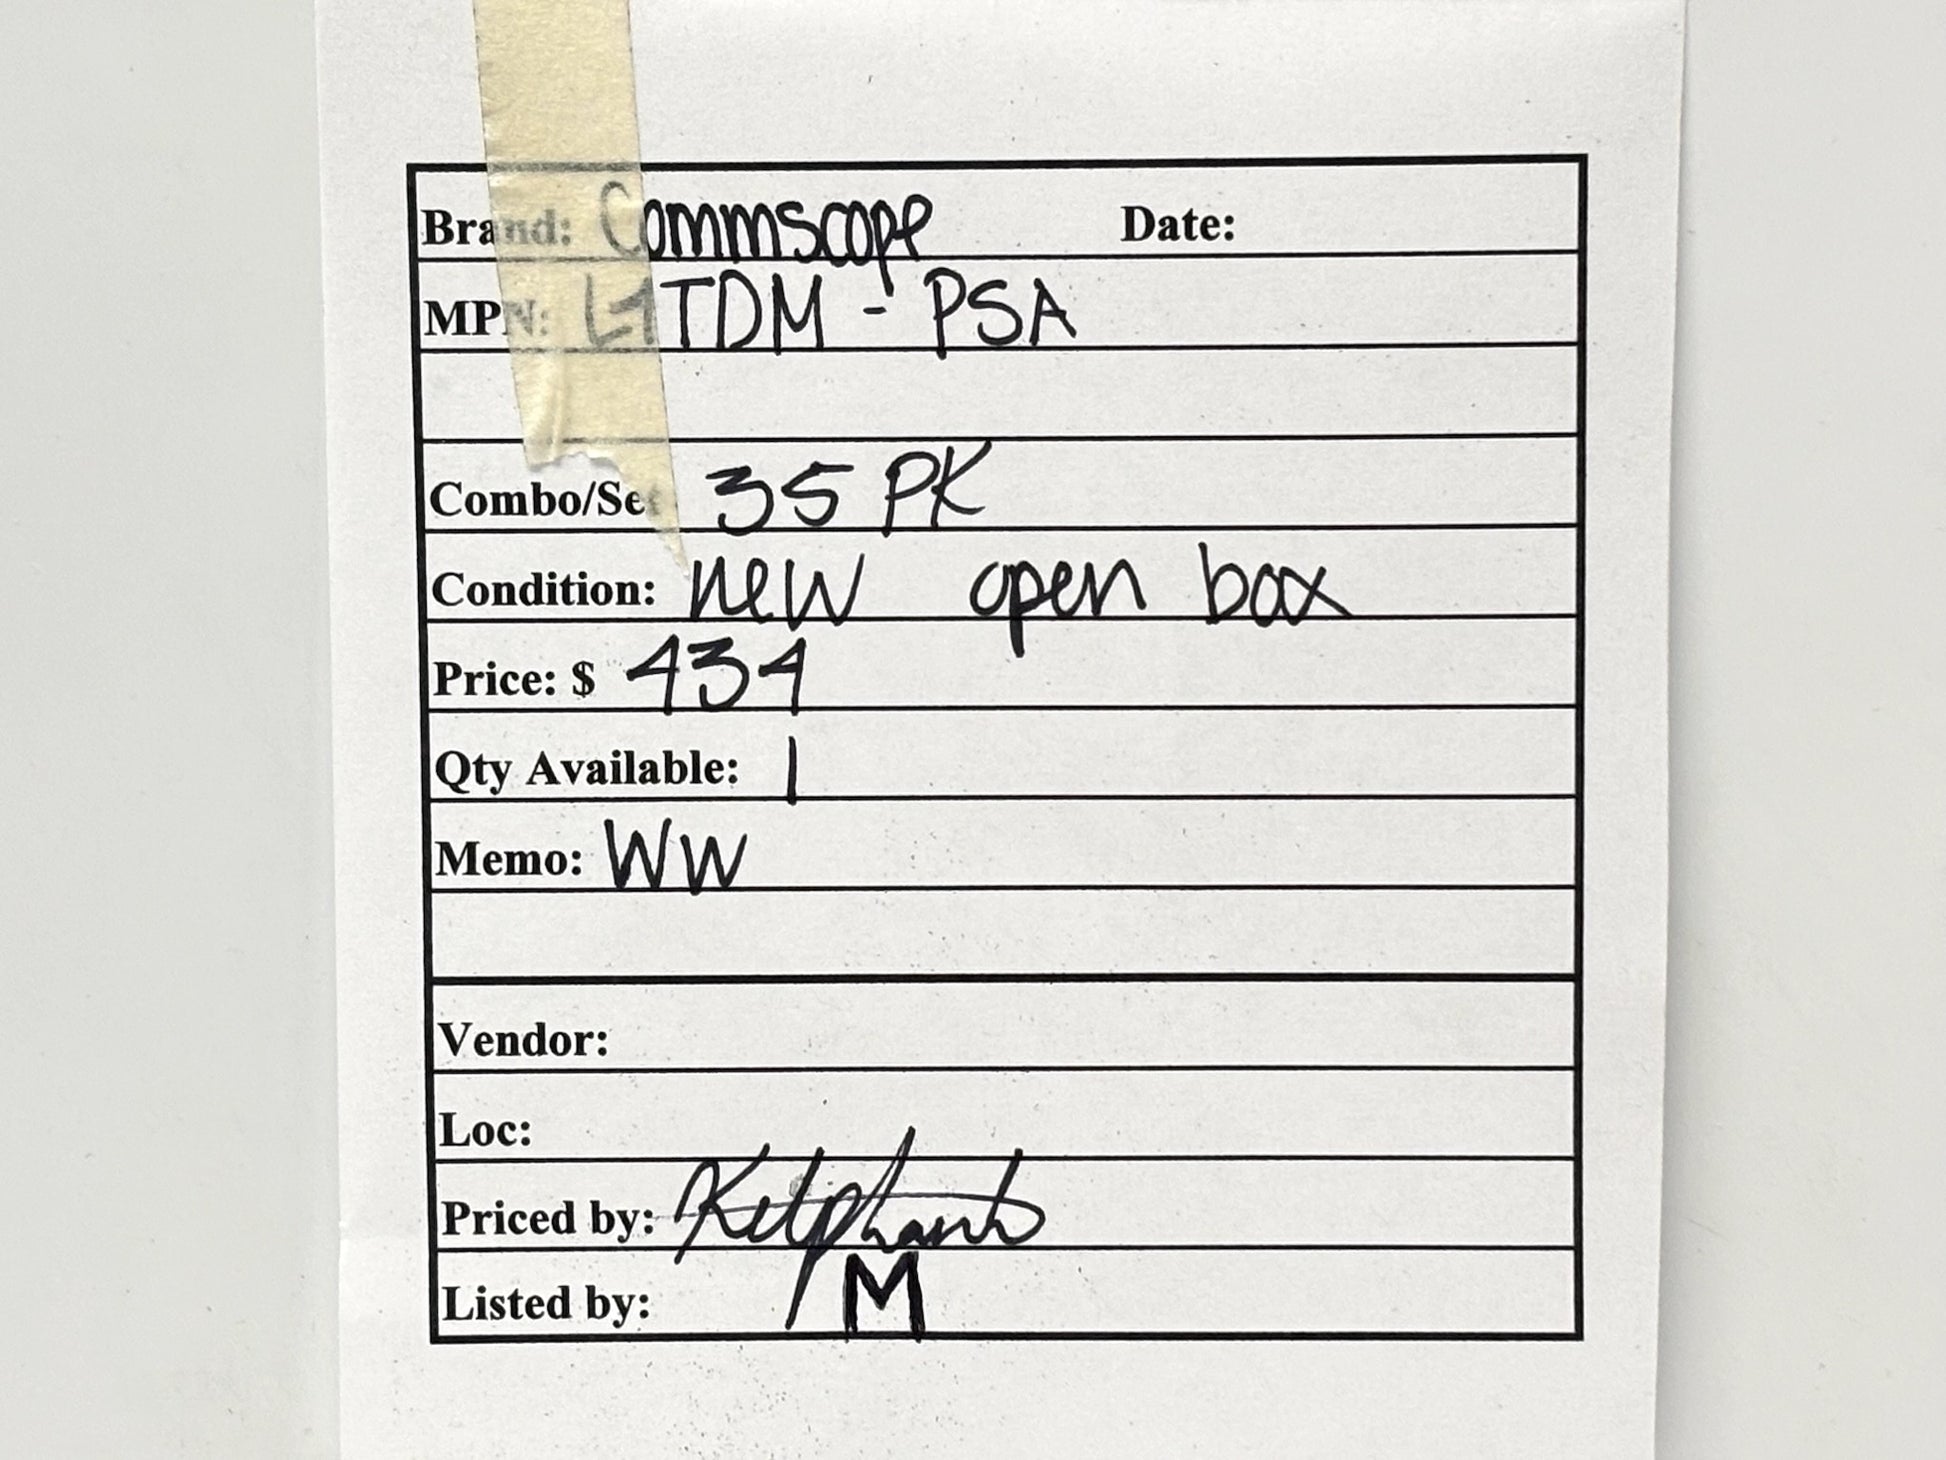 Brand: Commscope Date:
MPN: L1TDM - PSA
Combo/Set 35 PK
Condition: new open box
Price: $ 434
Qty Available: 1
Memo: WW
Vendor:
Loc:
Priced by:
Listed by: M